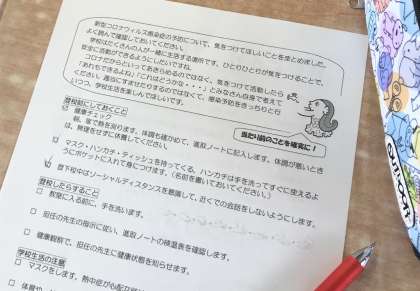 新型コロナウィルス感染症の予防について、気をつけてほしいことをまとめました。
よく読んで確認しておいてください。
学校はたくさんの人が一緒に生活する場所です。ひとりひとりが気をつけることで、
安全に活動ができるようにしたいですね。
コロナだからといってあきらめるのではなく、気をつけて活動したら
「あれもできるよね」「これはどうかな・・・」とみなさん自身で考えて
ください。適当にすませたりするのではなくて、感染予防をきっちりと行
いつつ、学校生活を楽しんでほしいです。
当たり前のことを確実に!
登校前にしておくこと
健康チェック
朝、家で熱を測ります。体調も確かめて、連絡ノートに記入します。体調が悪いとき
は、無理をせずに休養してください。
□ マスク・ハンカチ・ティッシュを持ってくる。ハンカチは手を洗ってすぐに使えるよ
うにポケットに入れて身につけます。(名前を書いておいてください。)
登下校中はソーシャルディスタンスを意識して、近くでの会話をしないようにします。
登校したらすること
□ 教室に入る前に、手を洗います。
□ 担任の先生の指示に従い、連絡ノートの検温表を確認します。
□ 健康観察で、担任の先生に健康状態を知らせます。
学校生活の注意
□ マスクをします。熱中症が心配な
□ 体育や